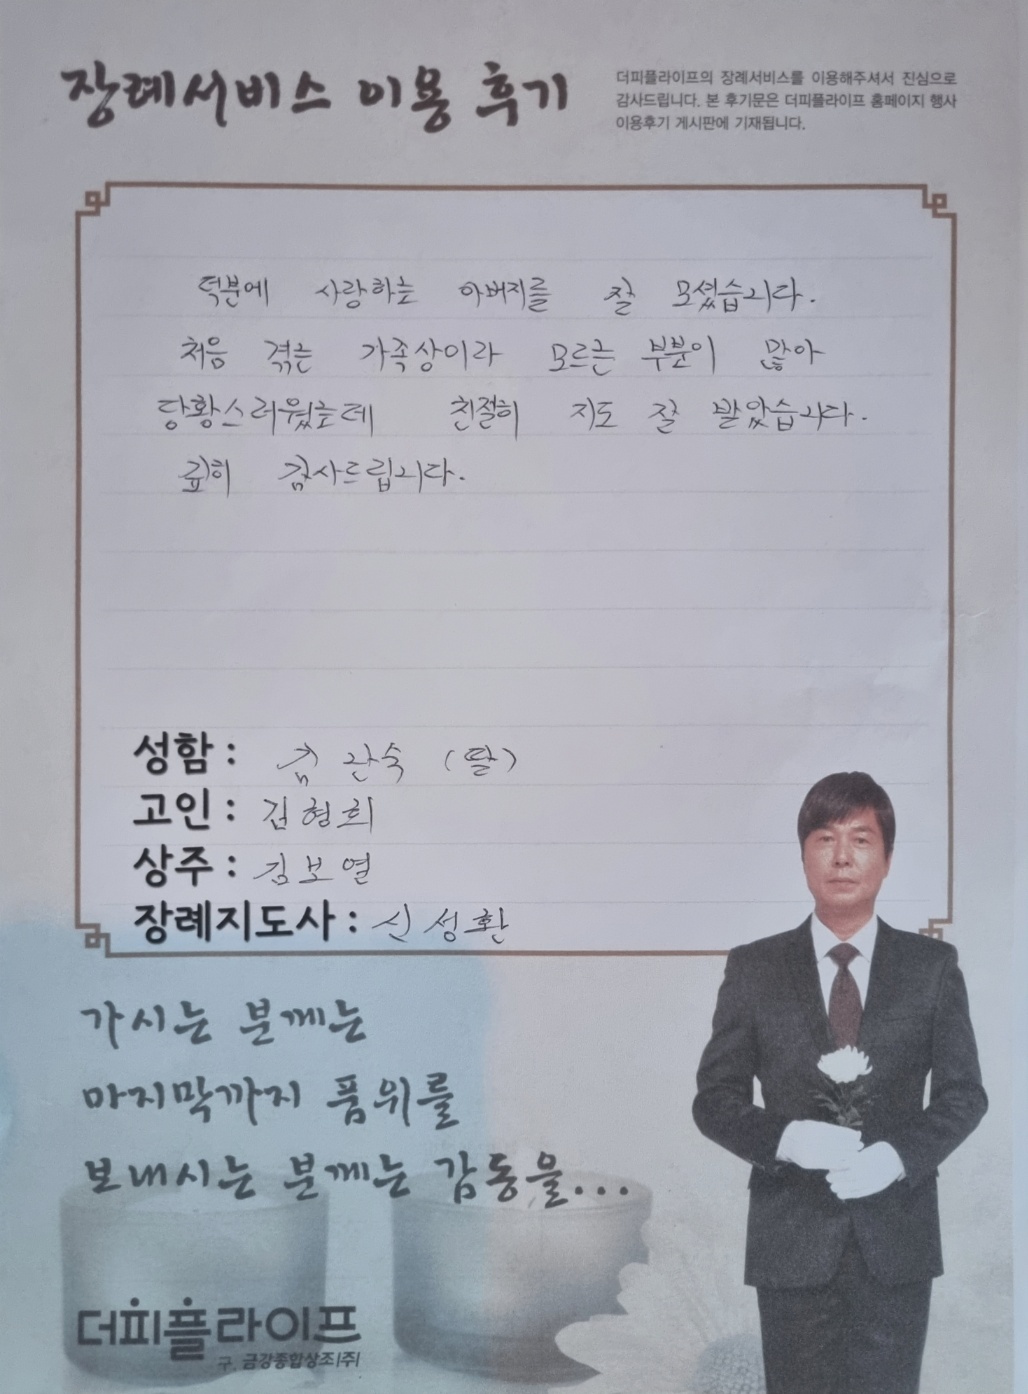 장례서비스 이용 후기
더피플라이프의 장례서비스를 이용해주셔서 진심으로
감사드립니다. 본 후기문은 더피플라이프 홈페이지 행사
이용후기 게시판에 기재됩니다.
덕분에 사랑하는 아버지를 잘 모셨습니다.
처음 겪는 가족상이라 모르는 부분이 많아
당황스러웠는데 친절히 지도 잘 받았습니다.
깊히 감사드립니다.
성함 : 김 관숙 (딸)
고인 : 김형희
상주 : 김보열
장례지도사 : 신성환
가시는 분께는
마지막까지 품위를
보내시는 분께는 감동을...
더피플라이프
구. 금강종합상조(주)